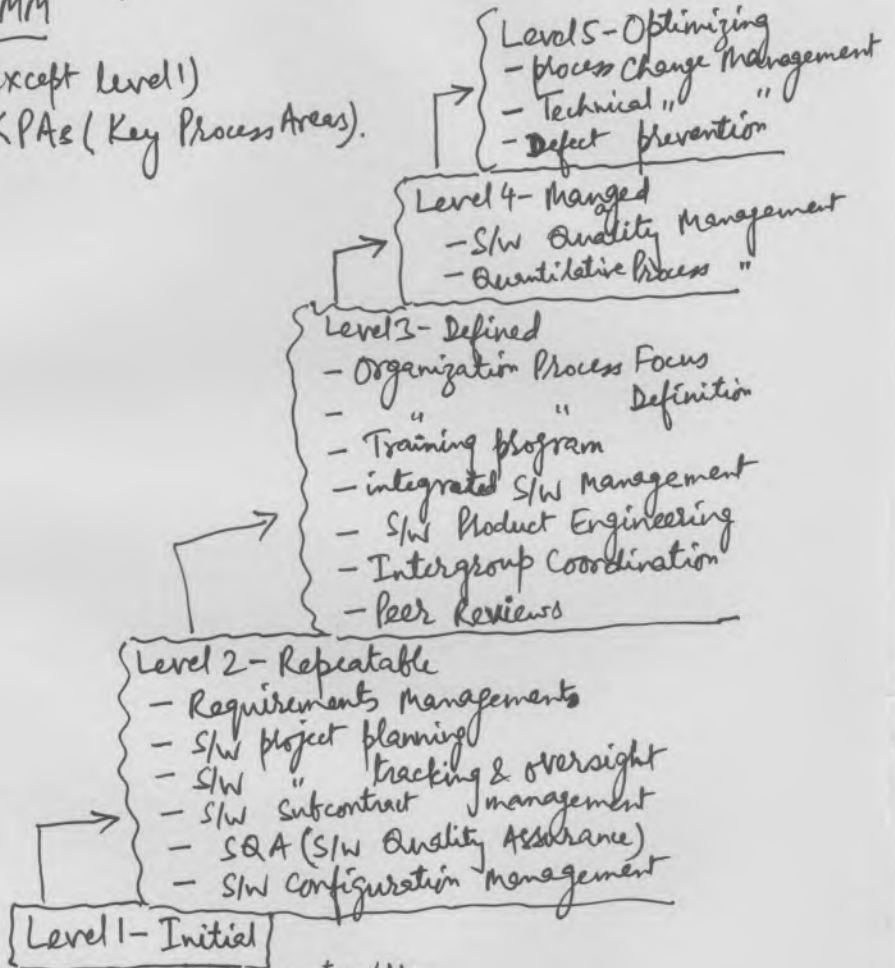 MM
except level 1)
KPAs (Key Process Areas).
Level 5 - Optimizing
- process Change Management
- Technical " "
- Defect prevention
Level 4 - Manged
- S/W Quality Management
- Quantitative Process "
Level 3 - Defined
- Organization Process Focus
- " " Definition
- Training program
- integrated S/W Management
- S/W Product Engineering
- Intergroup Coordination
- Peer Reviews
Level 2 - Repeatable
- Requirements Managements
- S/W project planning
- S/W " tracking & oversight
- S/W subcontract management
- SQA (S/W Quality Assurance)
- S/W Configuration Management
Level 1 - Initial